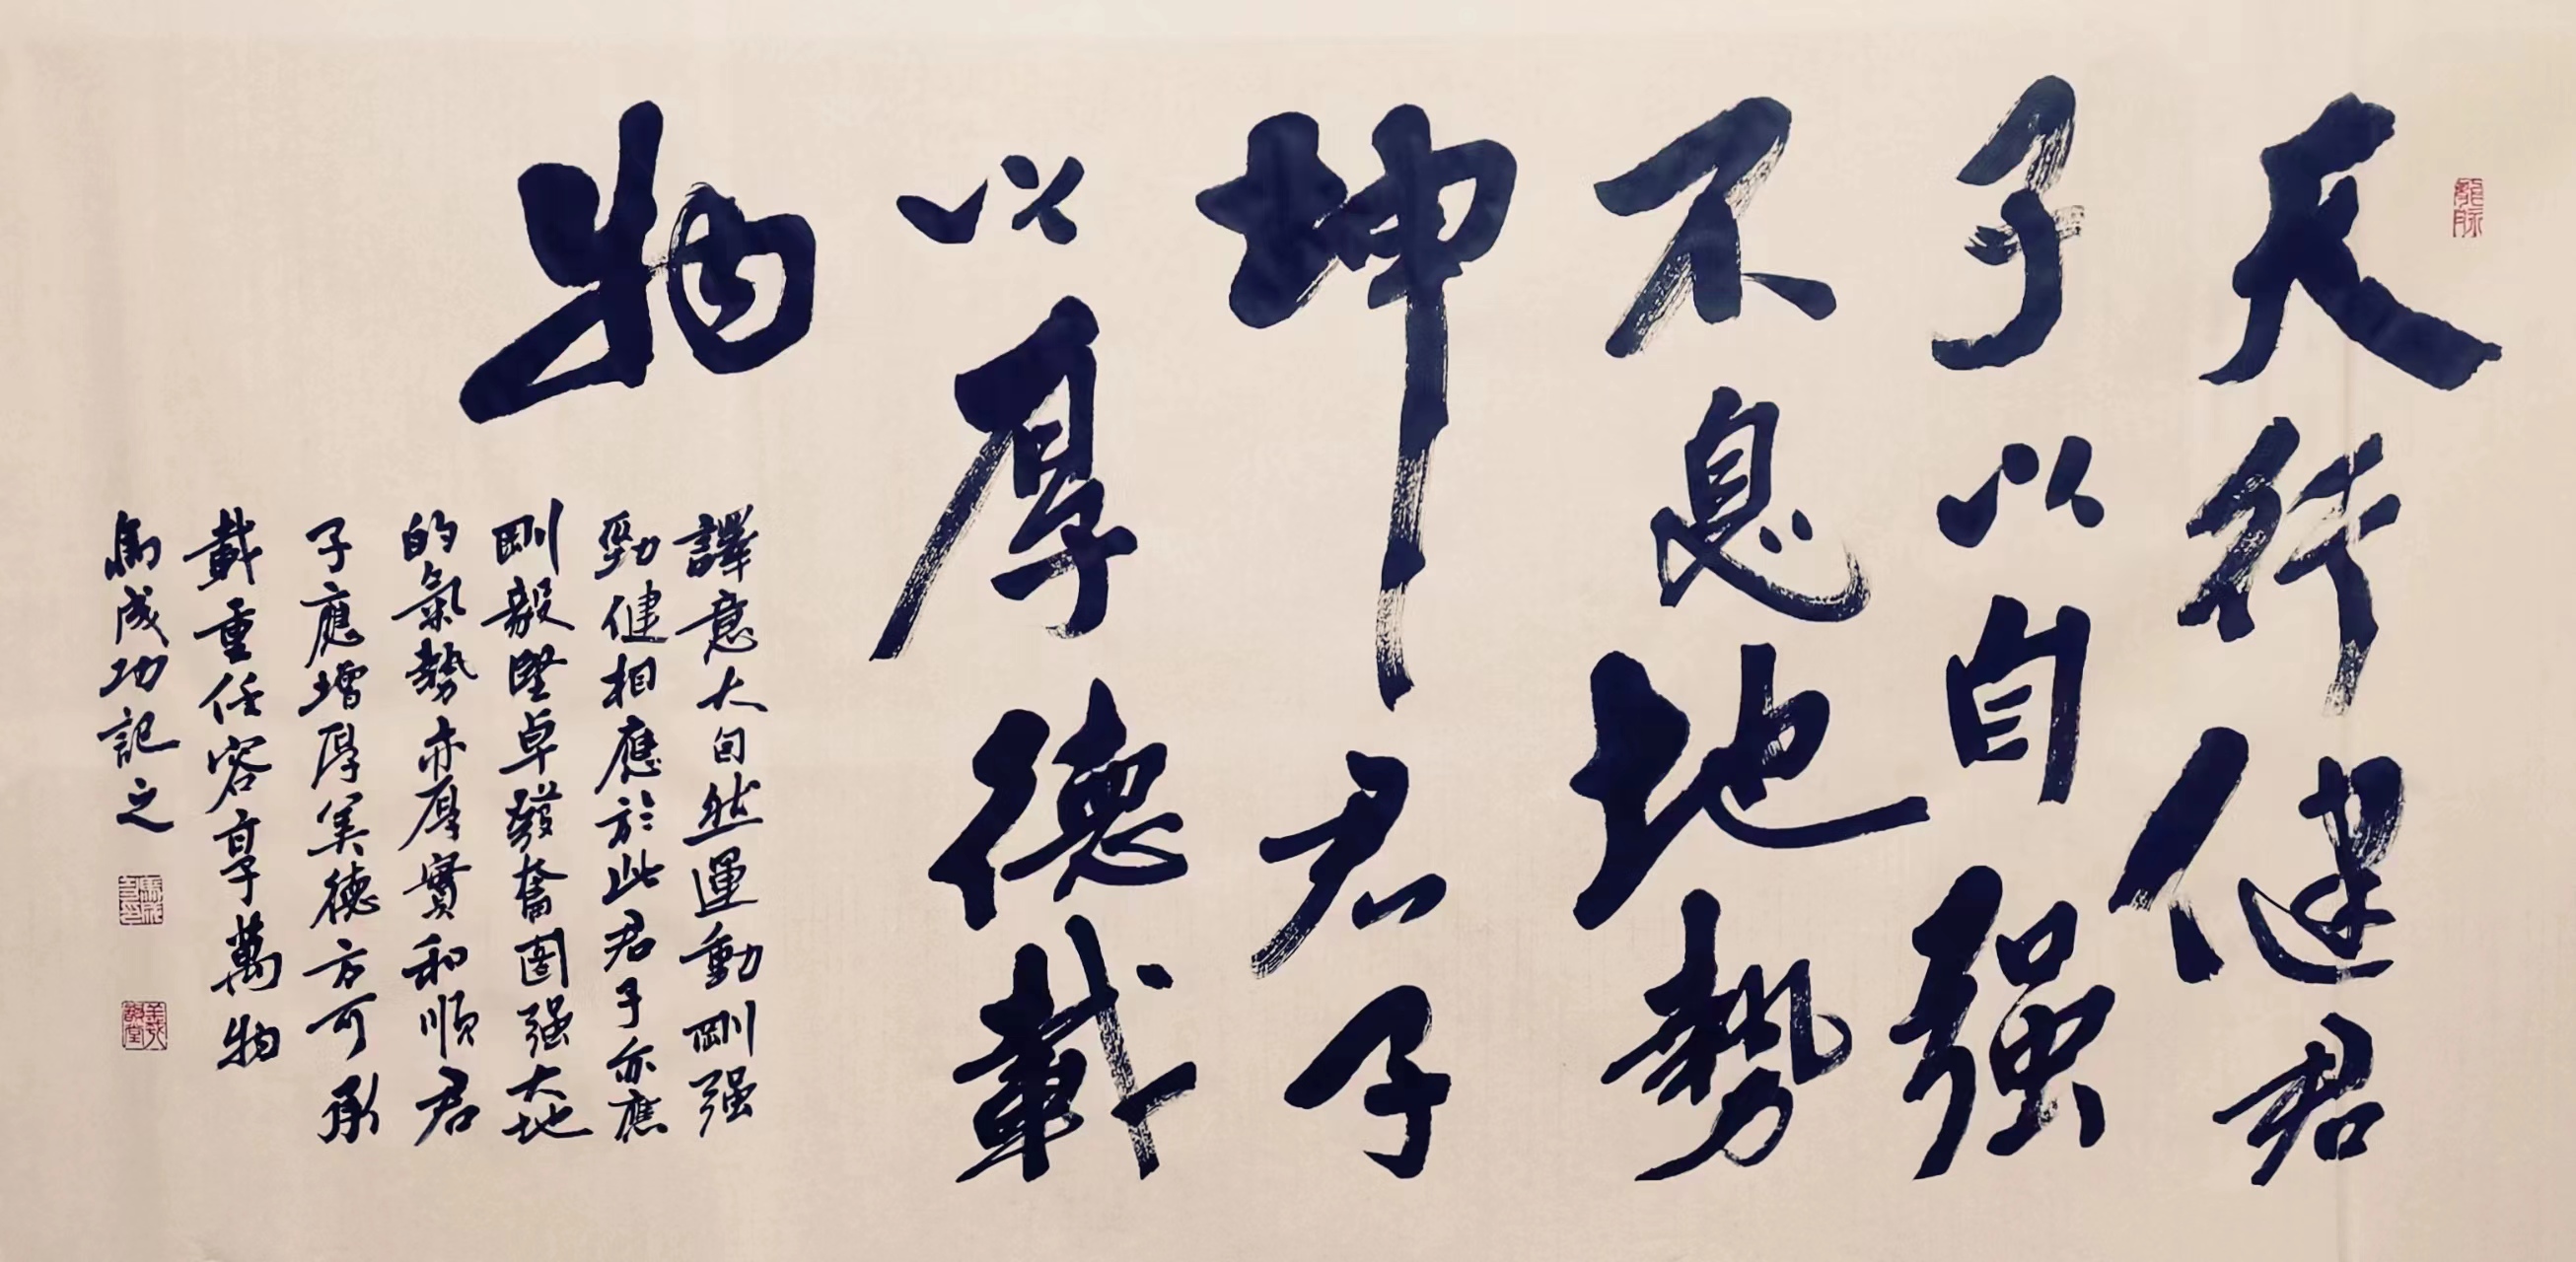 天行健君
子以自强
不息地勢
坤君子
以厚德載
物
譯意大自然運動剛强
勁健相應於此君子亦應
剛毅堅卓發奮圖强大地
的氣勢亦厚實和順君
子應增厚美德方可承
載重任容享萬物
馬成功記之